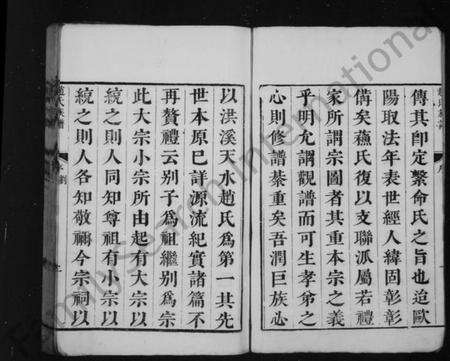 傳其卽定繫命氏之旨也迨歐
陽取法年表世經人緯固彰彰
備矣蘇氏復以支聯派屬若禮
家所謂宗圖者其重本宗之義
乎明允謂觀譜而可生孝弟之
心則修譜綦重矣吾潤巨族必
以洪溪天水趙氏爲第一其先
世本原已詳源流紀實諸篇不
再贅禮云別子爲祖繼別爲宗
此大宗小宗所由起有大宗以
統之則人同知尊祖有小宗以
統之則人各知敬禰今宗祠以
趙氏族譜
FamilySearch International